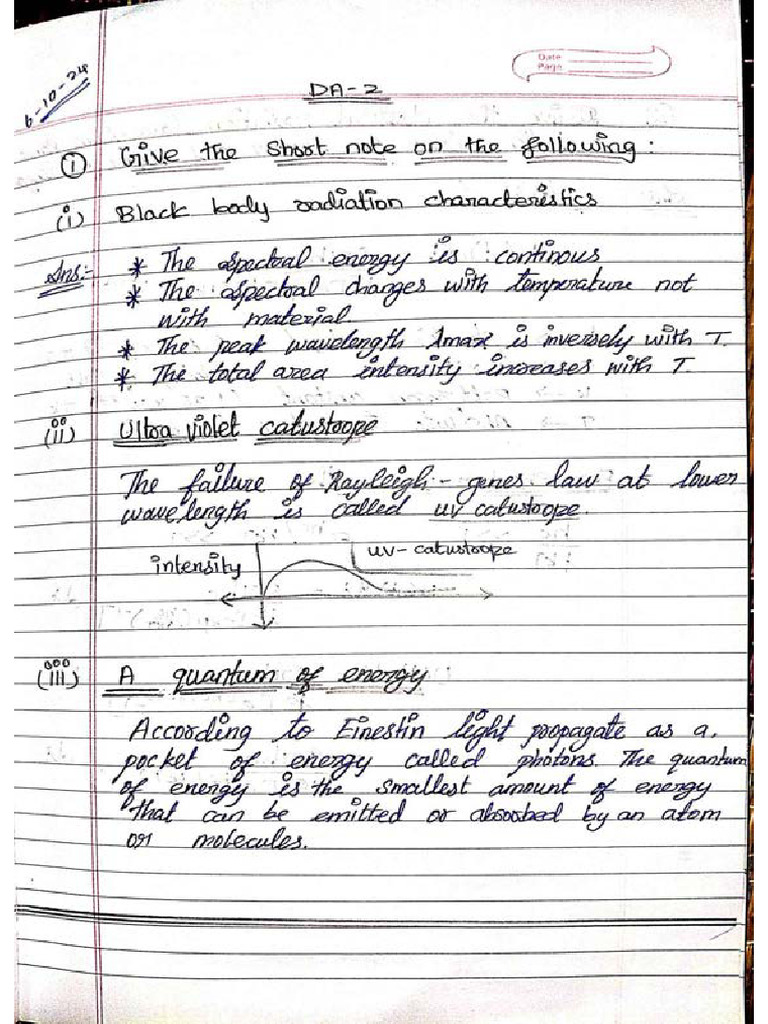 6-10-24
Date
Page
DA-2
① Give the Short note on the following :
(i) Black body radiation characteristics
Ans:- * The spectral energy is continous
* The spectral changes with temperature not
with material.
* The peak wavelength λmax is inversely with T.
* The total area intensity increases with T.
(ii) Ultra violet catustrope
The failure of Rayleigh - genes law at lower
wavelength is called uv catustrope.
intensity
uv- catustrope
(iii) A quantum of energy
According to Einestin light propagate as a
pocket of energy called photons. The quantum
of energy is the smallest amount of energy
that can be emitted or absorbed by an atom
or molecules.